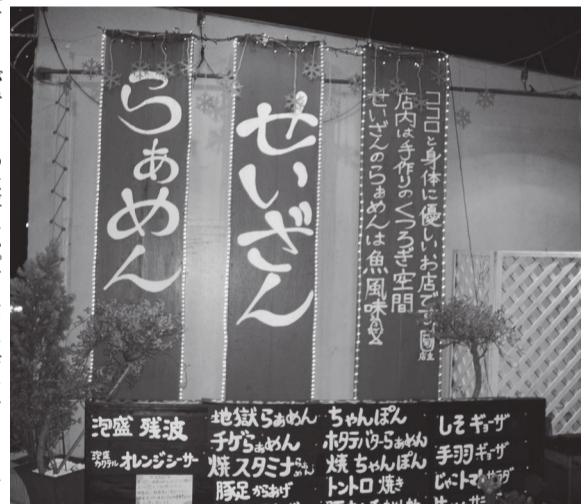 らぁめん
せいざん
ココロと身体に優しいお店です
店内は手作りのくつろぎ空間
せいざんのらぁめんは魚風味
泡盛 残波
泡盛カクテル オレンジシーサー
地獄らぁめん
チゲらぁめん
焼スタミナらぁめん
豚足からあげ
ちゃんぽん
ホタテバターらぁめん
焼ちゃんぽん
トントロ焼き
しそギョーザ
手羽ギョーザ